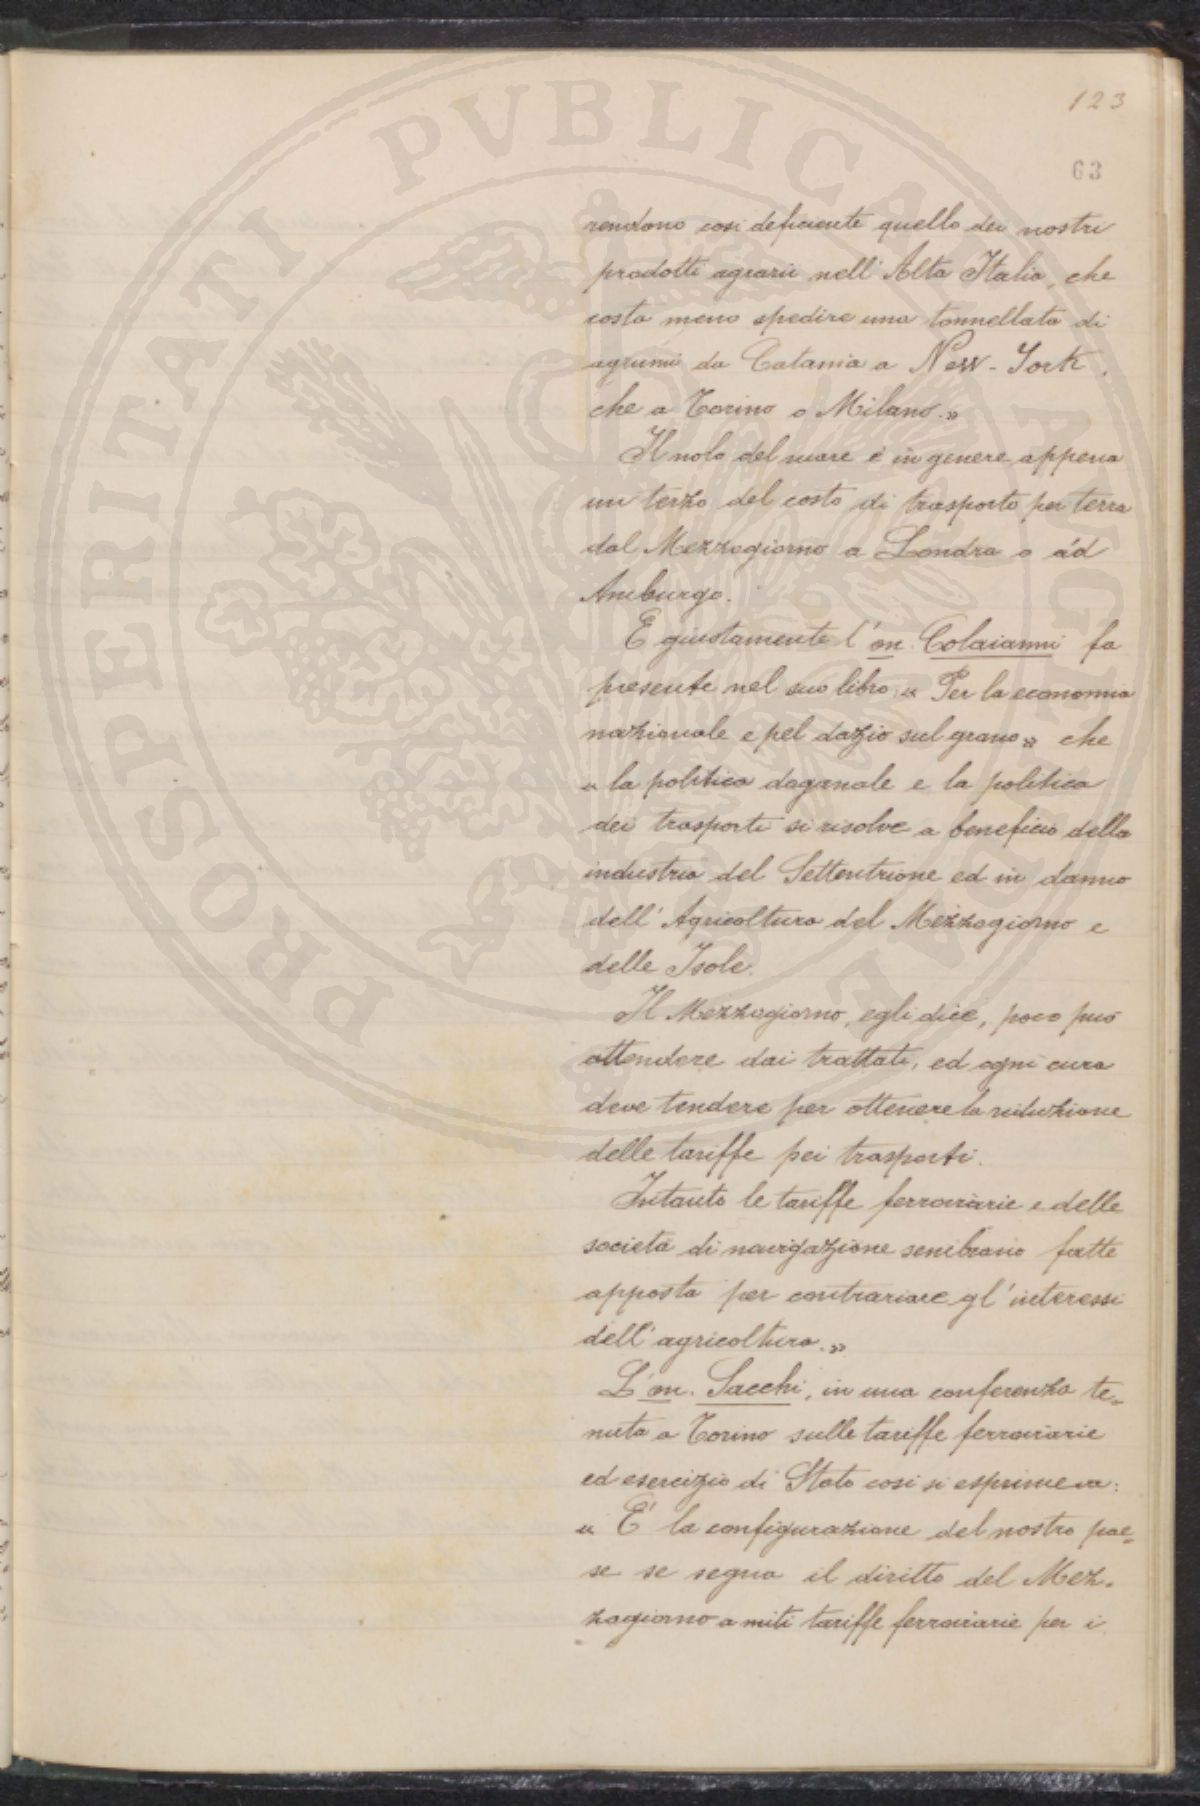 123
63
rendono cosi deficiente quello dei nostri
prodotti agrarii nell'Alta Italia, che
costa meno spedire una tonnellata di
agrumi da Catania a New-York,
che a Torino o Milano.»
Il nolo del mare è in genere appena
un terzo del costo di trasporto per terra
dal Mezzogiorno a Londra o ad
Amburgo.
E giustamente l'on. Colaianni fa
presente nel suo libro, « Per la economia
nazionale e pel dazio sul grano» che
« la politica doganale e la politica
dei trasporti si risolve a beneficio della
industria del Settentrione ed in danno
dell'Agricoltura del Mezzogiorno e
delle Isole.
Il Mezzogiorno, egli dice, poco può
attendere dai trattati, ed ogni cura
deve tendere per ottenere la riduzione
delle tariffe pei trasporti.
Intanto le tariffe ferroviarie e delle
società di navigazione sembrano fatte
apposta per contrariare gl'interessi
dell'agricoltura.»
L'on. Sacchi, in una conferenza te-
nuta a Torino sulle tariffe ferroviarie
ed esercizio di Stato cosi si esprimeva:
« E' la configurazione del nostro pae-
se se segna il diritto del Mez-
zogiorno a miti tariffe ferroviarie per i
PROSPERITATI PVBLICAE